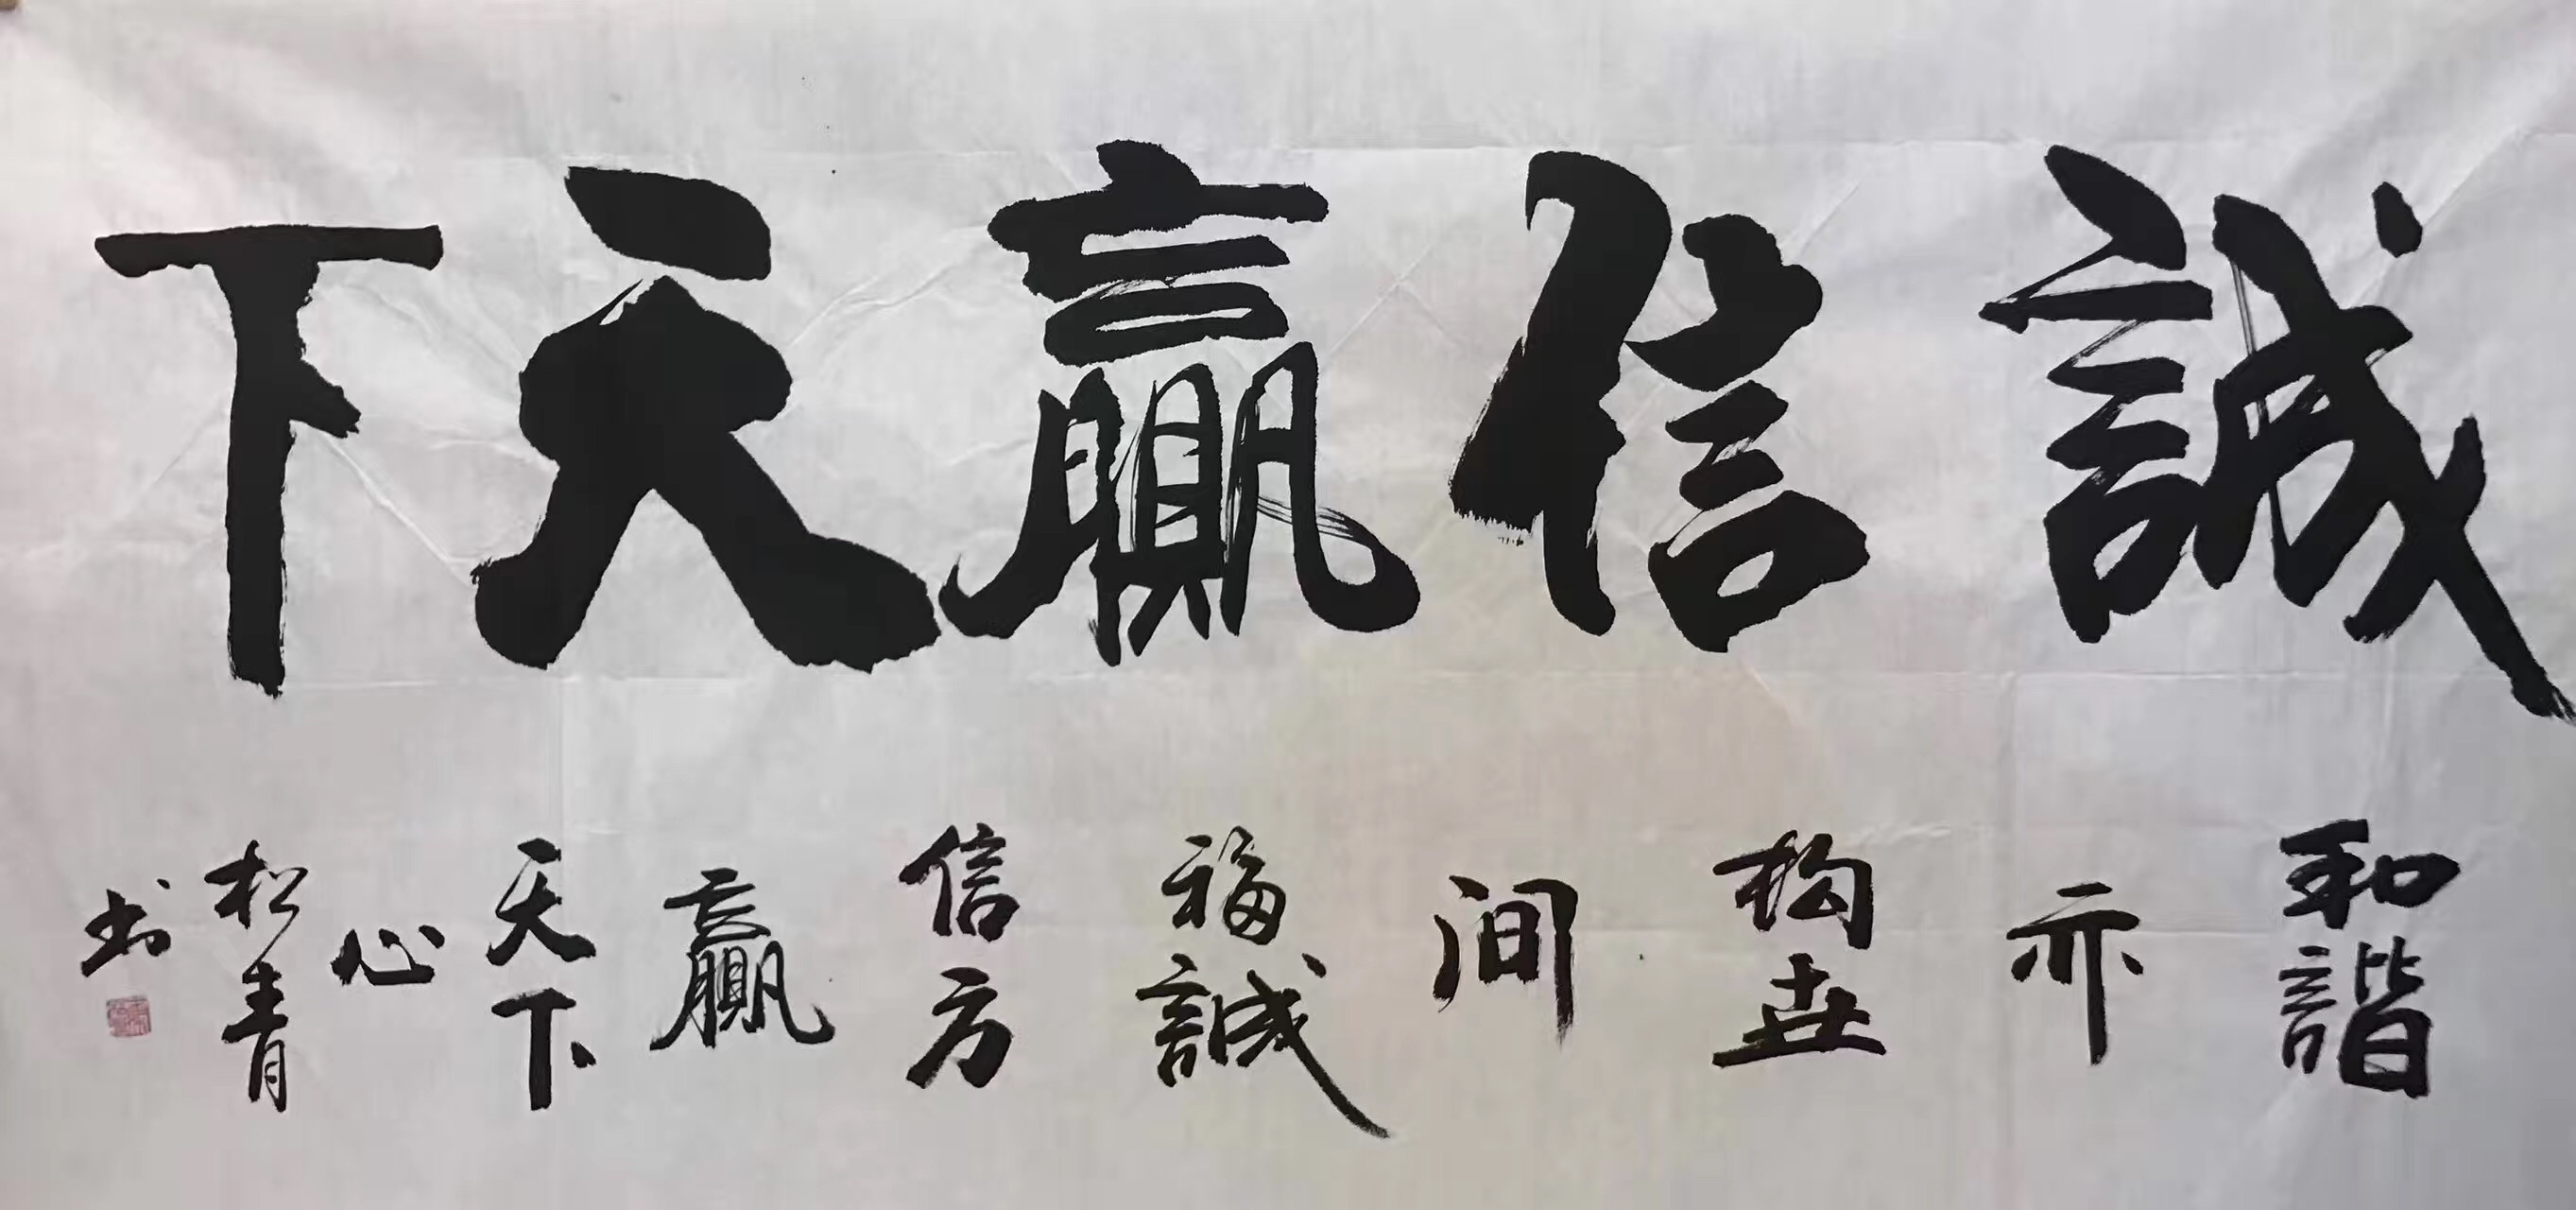 誠信贏天下
和諧亦构世间福誠信方贏天下心
松青书